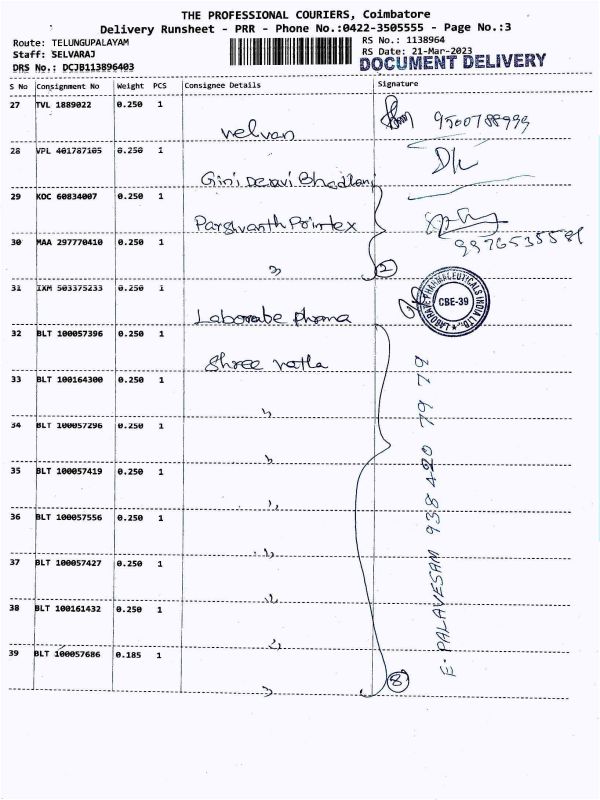 THE PROFESSIONAL COURIERS, Coimbatore
Delivery Runsheet - PRR - Phone No.:0422-3505555 - Page No.:3
Route: TELUNGUPALAYAM RS No.: 1138964
Staff: SELVARAJ RS Date: 21-Mar-2023
DRS No.: DCJB113896403 DOCUMENT DELIVERY
S No Consignment No Weight PCS Consignee Details Signature
27 TVL 1889022 0.250 1
velvan 9500788999
28 VPL 401787105 0.250 1
29 KOC 60834007 0.250 1
Parshvanth Pointex
30 MAA 297770410 0.250 1
2
31 IXM 503375233 0.250 1
LABORATE PHARMACEUTICALS INDIA LTD.
CBE-39
32 BLT 100057396 0.250 1
Shree
33 BLT 100164300 0.250 1
34 BLT 100057296 0.250 1
35 BLT 100057419 0.250 1
36 BLT 100057556 0.250 1
37 BLT 100057427 0.250 1
38 BLT 100161432 0.250 1
39 BLT 100057686 0.185 1
8
E. PALAVESAM 938 420 79 79